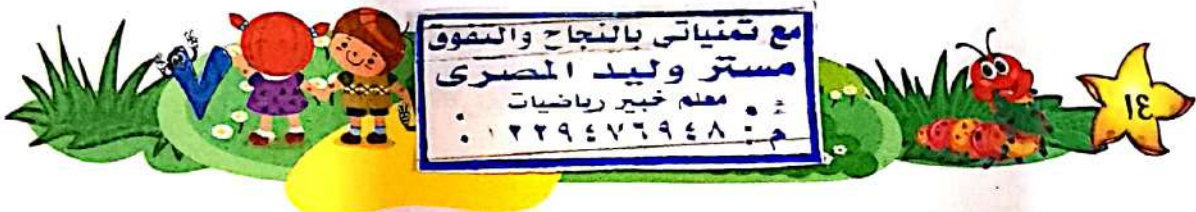 مع تمنياتى بالنجاح والتفوق
مستر وليد المصرى
معلم خبير رياضيات
م : ٠١٢٢٩٤٧٦٩٤٨
١٤